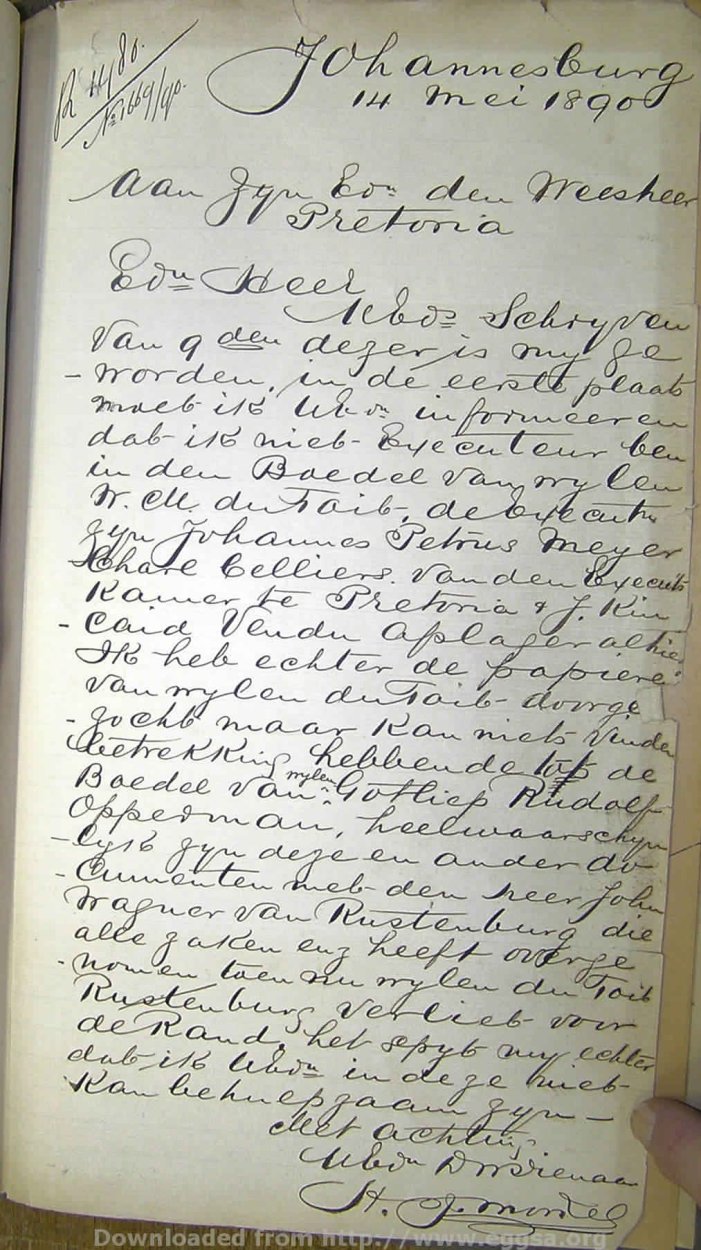 R 4480.
No 1669/90.
Johannesburg
14 Mei 1890
Aan Zyn Edn den Weesheer
Pretoria
Edn Heer
UEds Schryven
van 9 den dezer is my ge
- worden, in de eerste plaats
moet ik UEdn informeeren
dat ik niet Executeur ben
in den Boedel van wylen
W. M. du Toit, de Execut
zyn Johannes Petrus Meyer
Charl Celliers. van den Execut
Kamer te Pretoria & J. Kin
- caid Vendu Afslager alhier
Ik heb echter de papieren
van wylen du Toit doorge
- zocht maar kan niets vinden
betrekking hebbende op de
Boedel van wylen Gotliep Rudolf
Opperman, heelwaarschyn
- lyk zyn deze en ander do
- cumenten met den heer John
Wagner van Rustenburg die
alle zaken enz heeft overge
- nomen toen nu wylen du Toit
Rustenburg verliet voor
de Rand, het spyt my echter
dat ik UEdn in deze niet
kan behulpzaam zyn —
Met achting
UEdn Dw Dienaar
Downloaded from http://www.eggsa.org